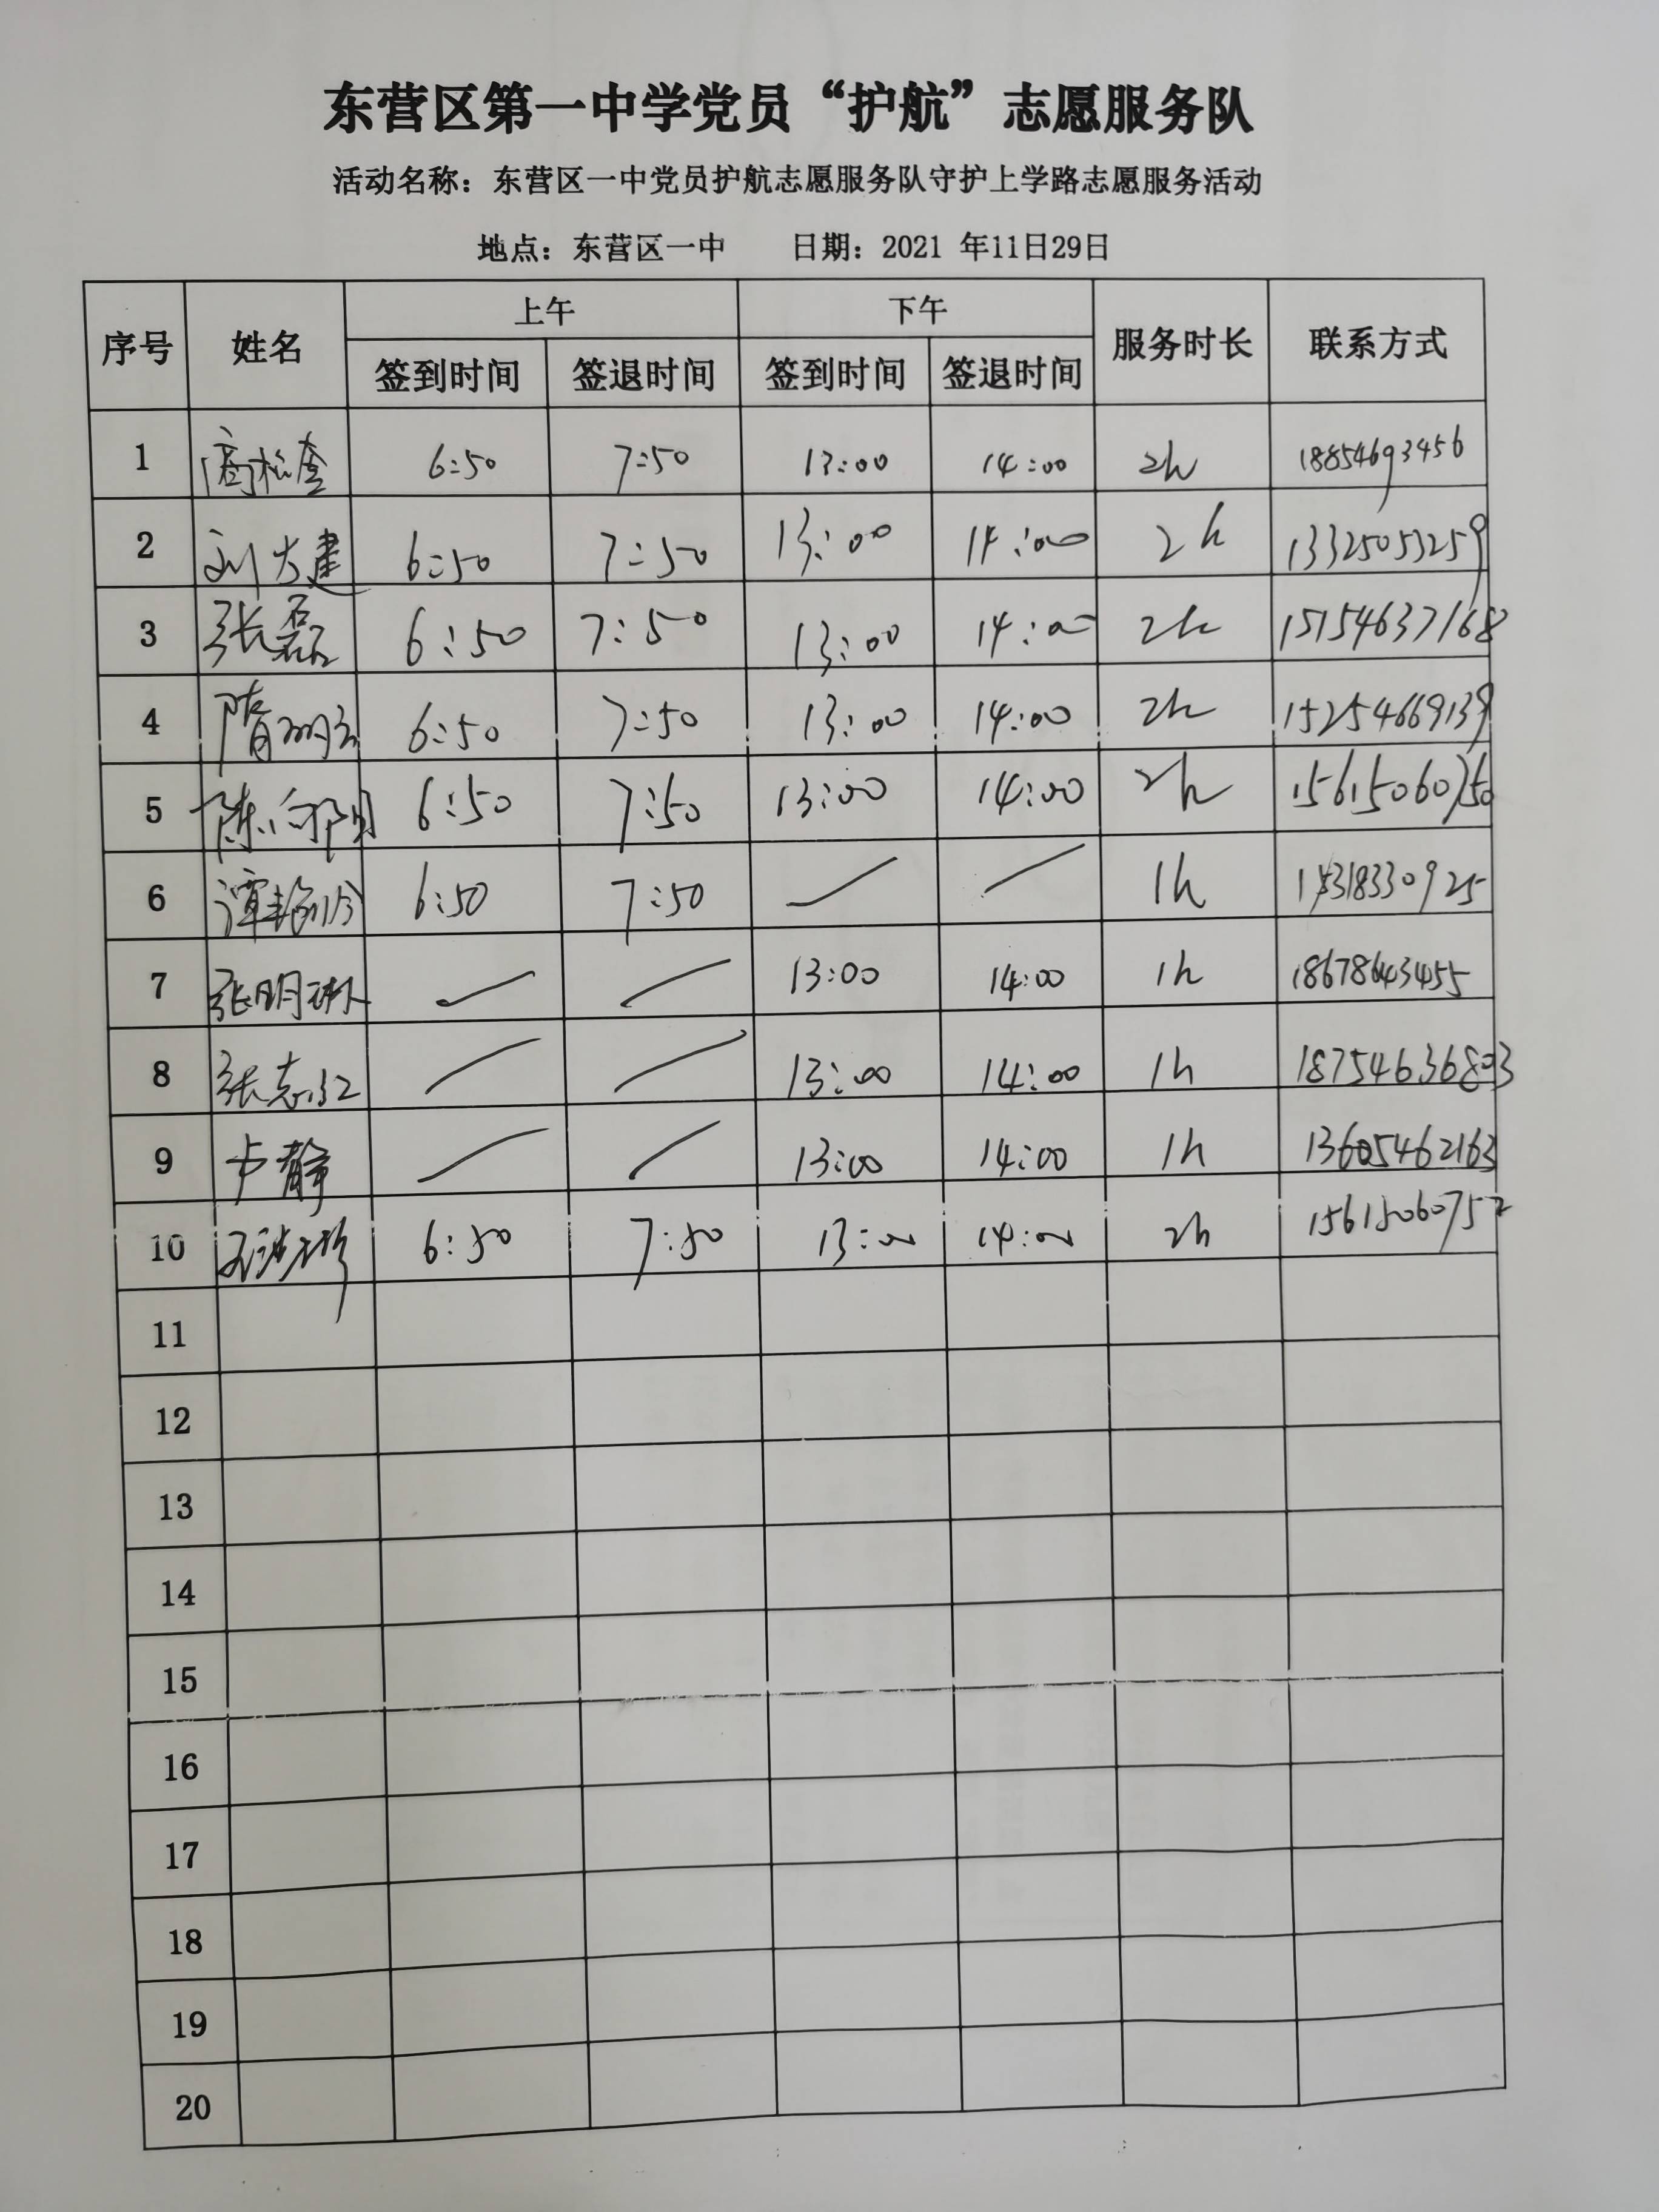 东营区第一中学党员“护航”志愿服务队
活动名称：东营区一中党员护航志愿服务队守护上学路志愿服务活动
地点：东营区一中 日期：2021 年11日29日
序号 姓名 上午 下午 服务时长 联系方式
签到时间 签退时间 签到时间 签退时间
1 6:50 7:50 13:00 14:00 2h 18854693456
2 刘大建 6:50 7:50 13:00 14:00 2h 13325053259
3 张磊 6:50 7:50 13:00 14:00 2h 15154637168
4 6:50 7:50 13:00 14:00 2h 15254669139
5 6:50 7:50 13:00 14:00 2h 15615060750
6 6:50 7:50 1h
7 张明琳 13:00 14:00 1h 18678643455
8 张志红 13:00 14:00 1h 18754636803
9 卢静 13:00 14:00 1h 13605462163
10 6:50 7:50 13:00 14:00 2h 15615060752
11
12
13
14
15
16
17
18
19
20